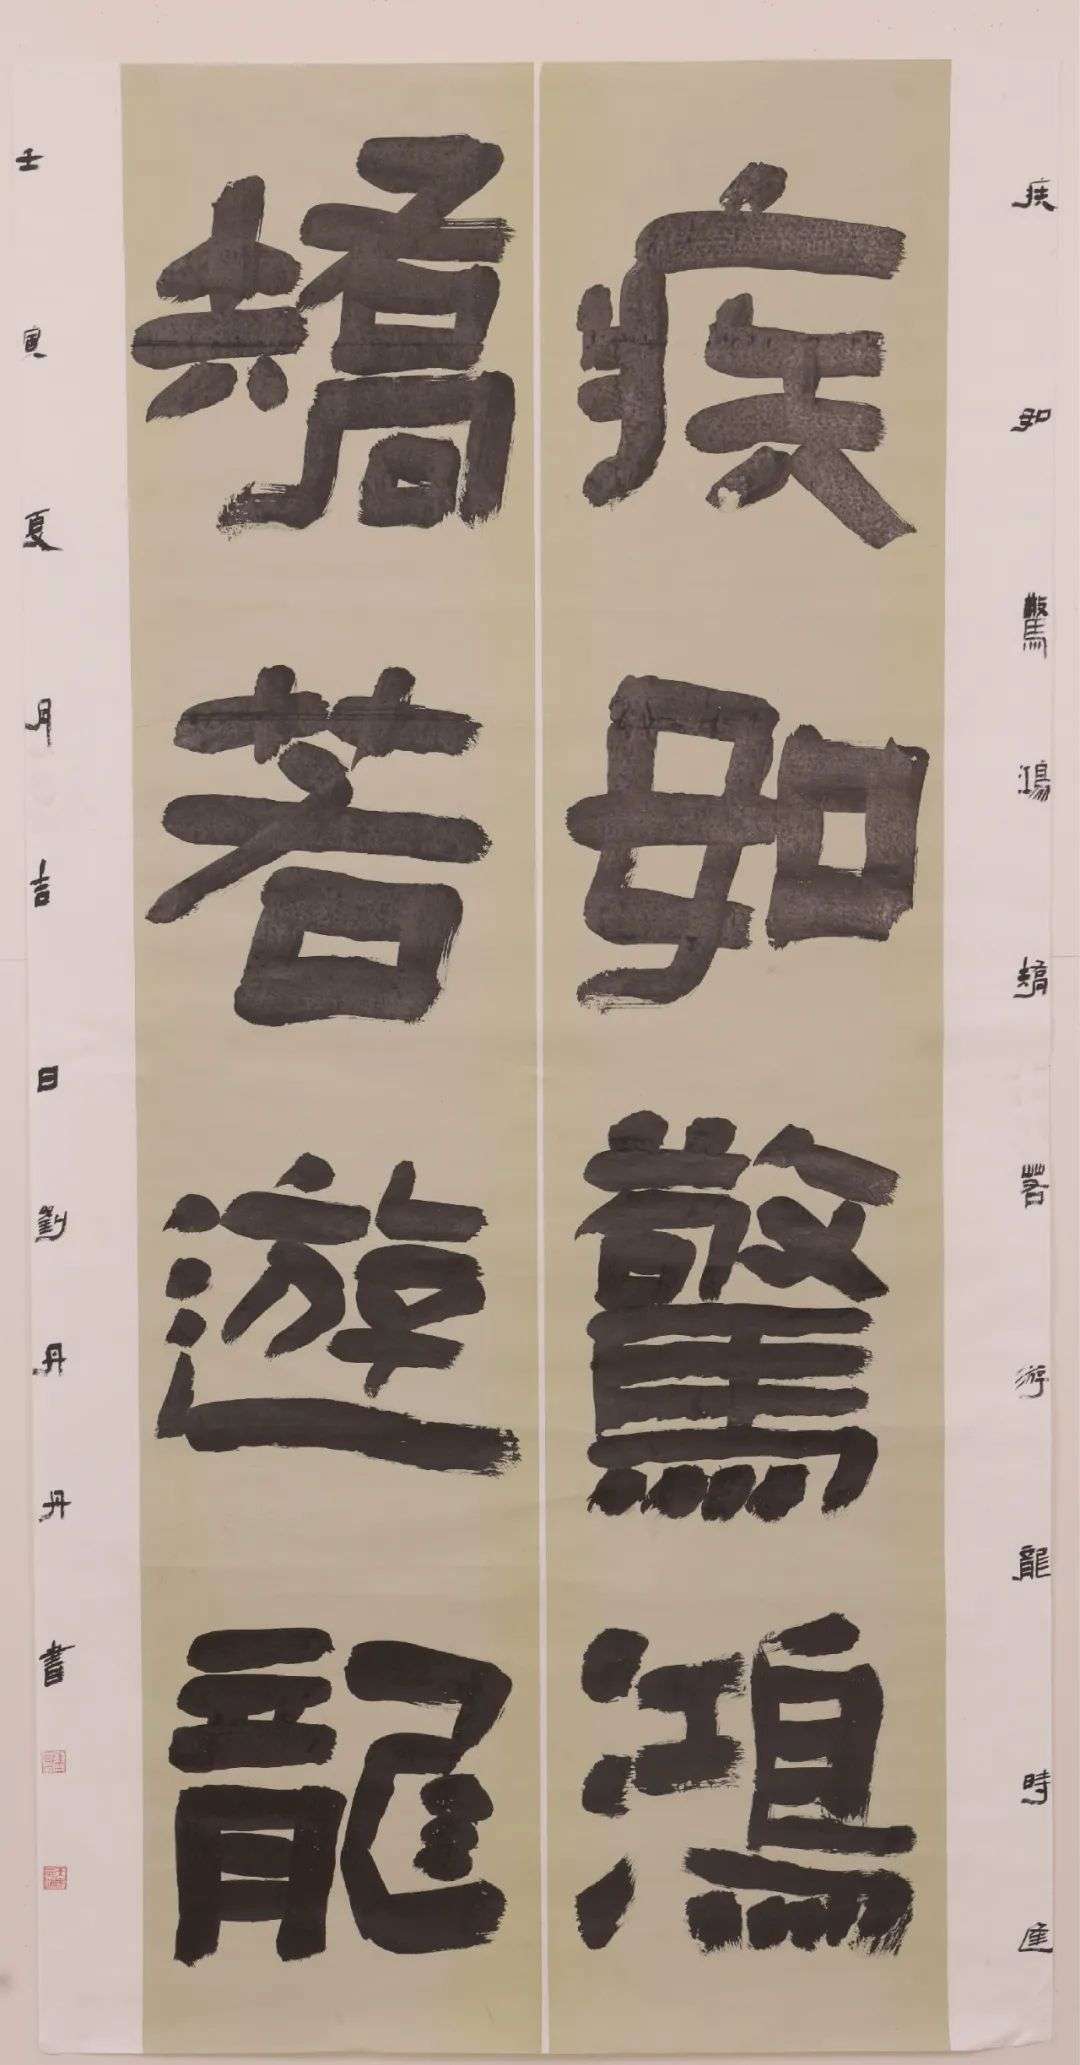 疾如驚鴻矯若游龍時
疾如驚鴻
矯若遊龍
壬寅夏月吉日劉丹丹書